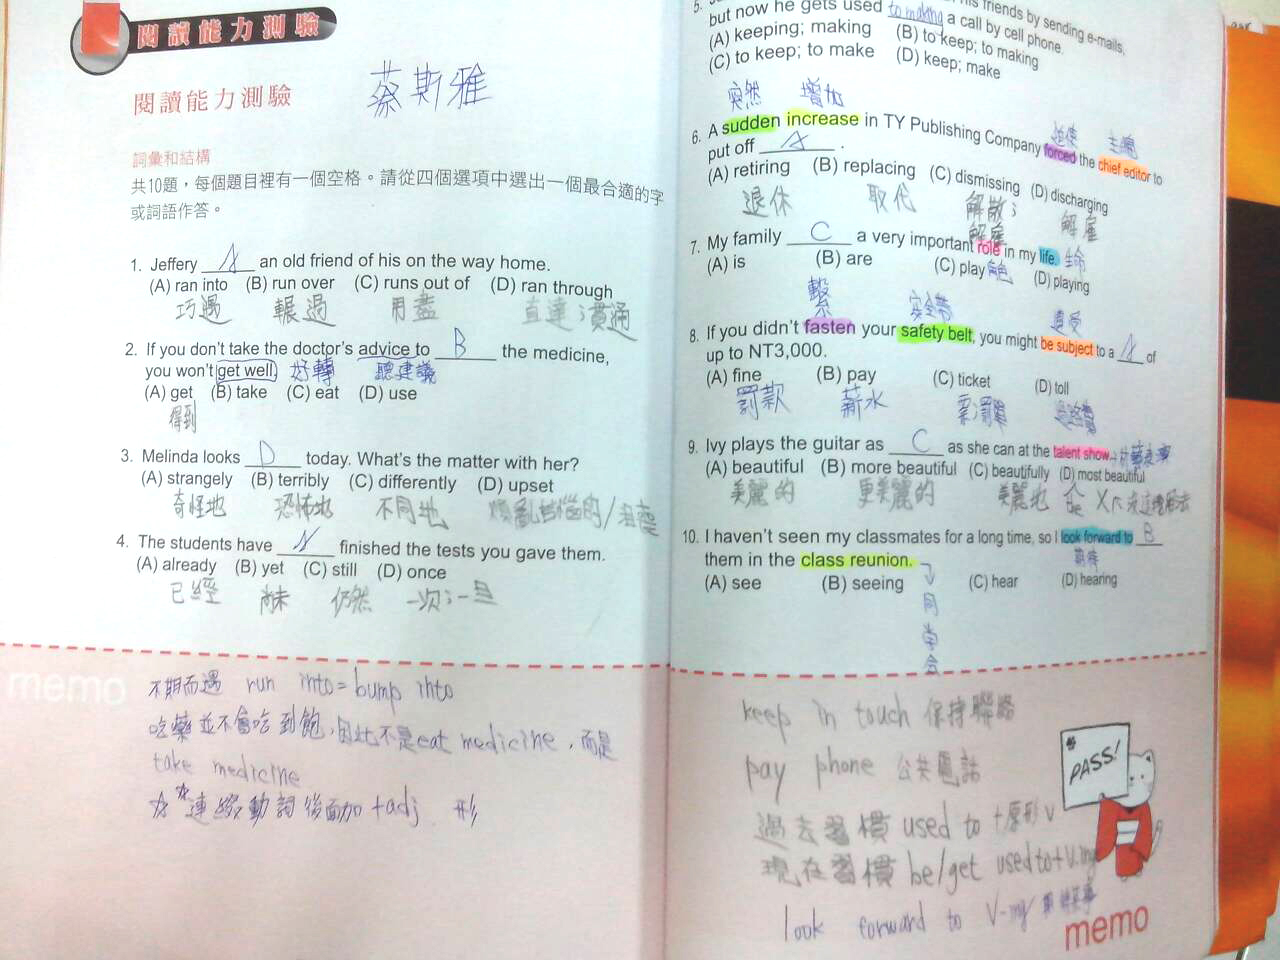 閱讀能力測驗
閱讀能力測驗
蔡斯雅
詞彙和結構
共10題，每個題目裡有一個空格。請從四個選項中選出一個最合適的字
或詞語作答。
1. Jeffery A an old friend of his on the way home.
(A) ran into (B) run over (C) runs out of (D) ran through
巧遇 輾過 用盡 直達；貫通
2. If you don't take the doctor's advice to B the medicine,
you won't get well. 好轉 聽建議
(A) get (B) take (C) eat (D) use
得到
3. Melinda looks D today. What's the matter with her?
(A) strangely (B) terribly (C) differently (D) upset
奇怪地 恐怖地 不同地
4. The students have A finished the tests you gave them.
(A) already (B) yet (C) still (D) once
已經 尚未 仍然 一次；一旦
memo
不期而遇 run into = bump into
吃藥並不會吃到飽,因此不是eat medicine，而是
take medicine
連綴動詞後面加+adj 形
5. his friends by sending e-mails,
but now he gets used to making a call by cell phone.
(A) keeping; making (B) to keep; to making
(C) to keep; to make (D) keep; make
突然 增加
6. A sudden increase in TY Publishing Company forced the chief editor to
迫使 主編
put off A .
(A) retiring (B) replacing (C) dismissing (D) discharging
退休 取代 解散； 解雇
解雇
7. My family C a very important role in my life. 生命
(A) is (B) are (C) play (D) playing
繫 安全帶 遭受
8. If you didn't fasten your safety belt, you might be subject to a A of
up to NT3,000.
(A) fine (B) pay (C) ticket (D) toll
罰款 薪水 過路費
9. Ivy plays the guitar as C as she can at the talent show.
(A) beautiful (B) more beautiful (C) beautifully (D) most beautiful
美麗的 更美麗的 美麗地
10. I haven't seen my classmates for a long time, so I look forward to B
期待
them in the class reunion.
(A) see (B) seeing (C) hear (D) hearing
同學會
keep in touch 保持聯絡
pay phone 公共電話
過去習慣 used to +原形V
現在習慣 be/get used to+V.ing
look forward to V-ing
PASS!
memo